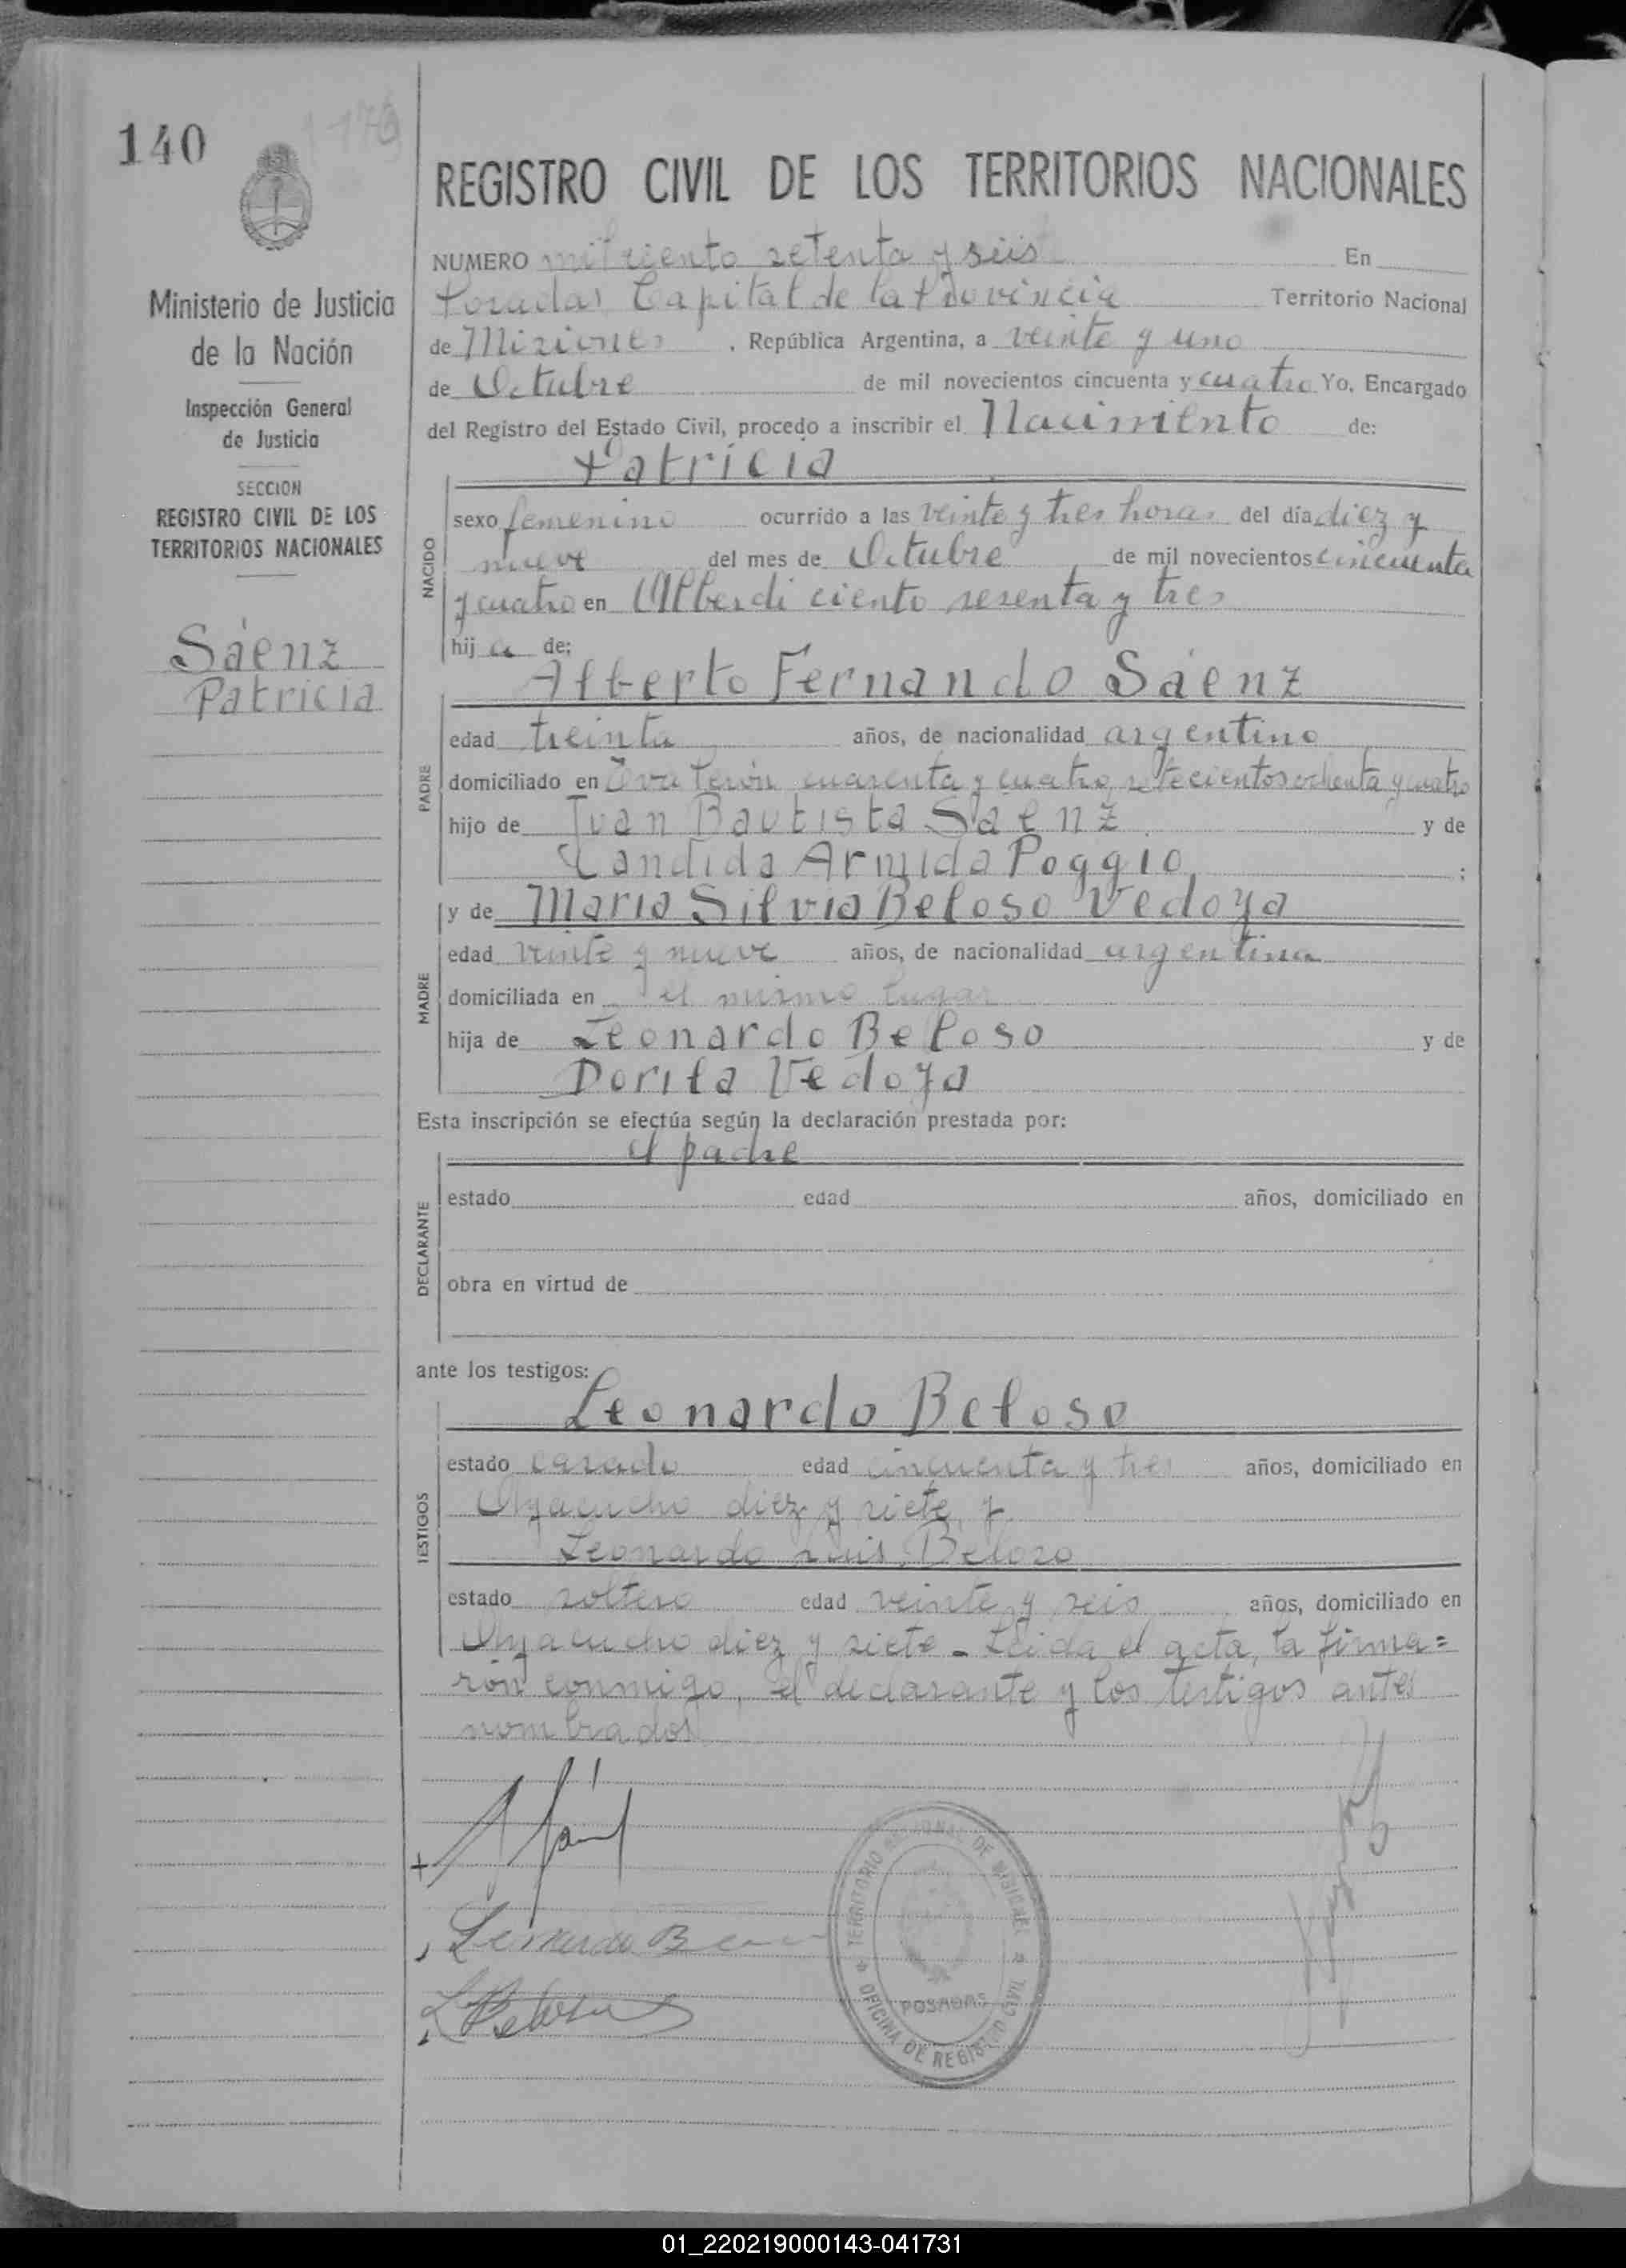 140
1176
REGISTRO CIVIL DE LOS TERRITORIOS NACIONALES
Ministerio de Justicia
de la Nación
Inspección General
de Justicia
SECCION
REGISTRO CIVIL DE LOS
TERRITORIOS NACIONALES
Sáenz
Patricia
NUMERO mil ciento setenta y seis En
Posadas Capital de la Provincia Territorio Nacional
de Misiones, República Argentina, a veinte y uno
de Octubre de mil novecientos cincuenta y cuatro Yo, Encargado
del Registro del Estado Civil, procedo a inscribir el Nacimiento de:
Patricia
NACIDO
sexo femenino ocurrido a las veinte y tres horas del día diez y
nueve del mes de Octubre de mil novecientos cincuenta
y cuatro en Alberdi ciento sesenta y tres
hija de:
Alberto Fernando Sáenz
PADRE
edad treinta años, de nacionalidad argentino
domiciliado en Eva Perón cuarenta y cuatro setecientos ochenta y cuatro
hijo de Juan Bautista Saenz y de
Candida Armida Poggio;
y de Maria Silvia Beloso Vedoya
MADRE
edad veinte y nueve años, de nacionalidad argentina
domiciliada en el mismo lugar
hija de Leonardo Beloso y de
Dorila Vedoya
Esta inscripción se efectúa según la declaración prestada por:
el padre
DECLARANTE
estado edad años, domiciliado en
obra en virtud de
ante los testigos:
Leonardo Beloso
TESTIGOS
estado casado edad cincuenta y tres años, domiciliado en
Ayacucho diez y siete y
Leonardo Luis Beloso
estado soltero edad veinte y seis años, domiciliado en
Ayacucho diez y siete - Leida el acta, la firma=
ron conmigo, el declarante y los testigos antes
nombrados
Leonardo B
TERRITORIO NACIONAL DE MISIONES
POSADAS
OFICINA DE REGISTRO CIVIL
01_220219000143-041731